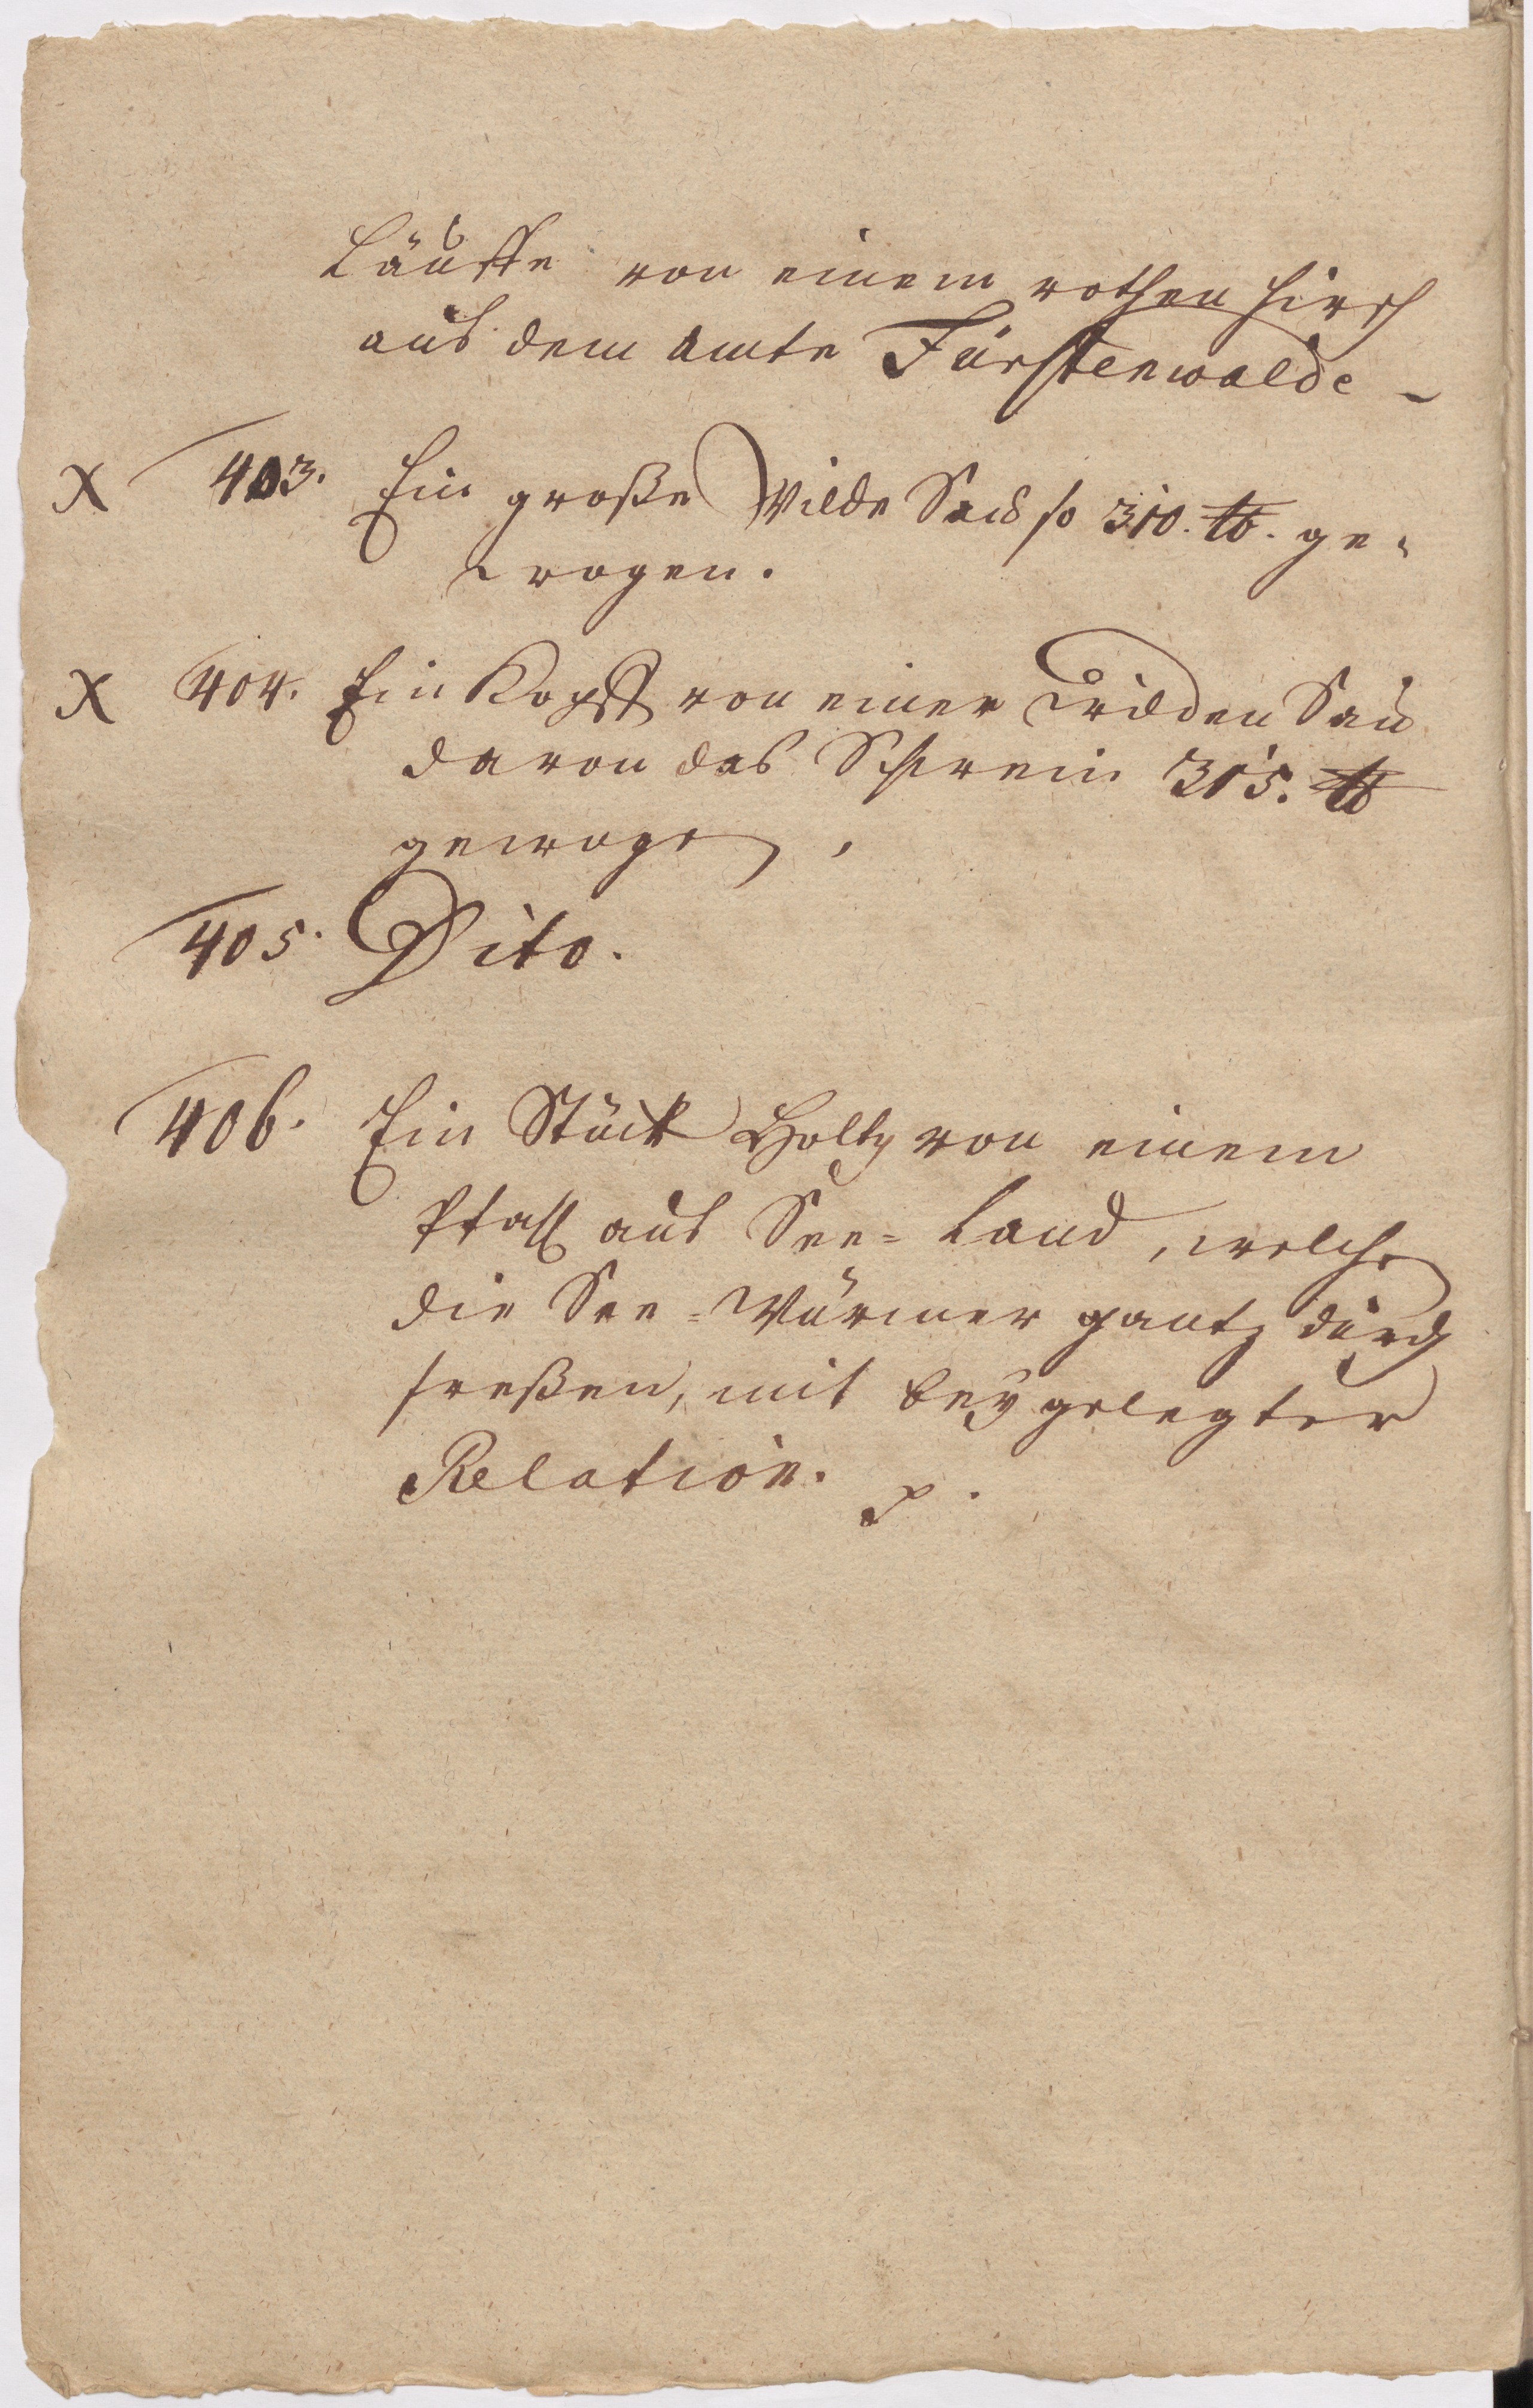 Läuffte von einem rothen Hirsch
aus dem Amte Fürstenwalde
X 403. Ein große Wilde Sau so 310. ℔. ge-
wogen.
X 404. Ein Kopff von einer Wilden Sau
davon das Schwein 315. ℔
gewogen,
405. Dito.
406. Ein Stück Holtz von einem
Pfall aus See-Land, welche
die See-Würmer gantz durch
freßen, mit beygelegter
Relation. p.